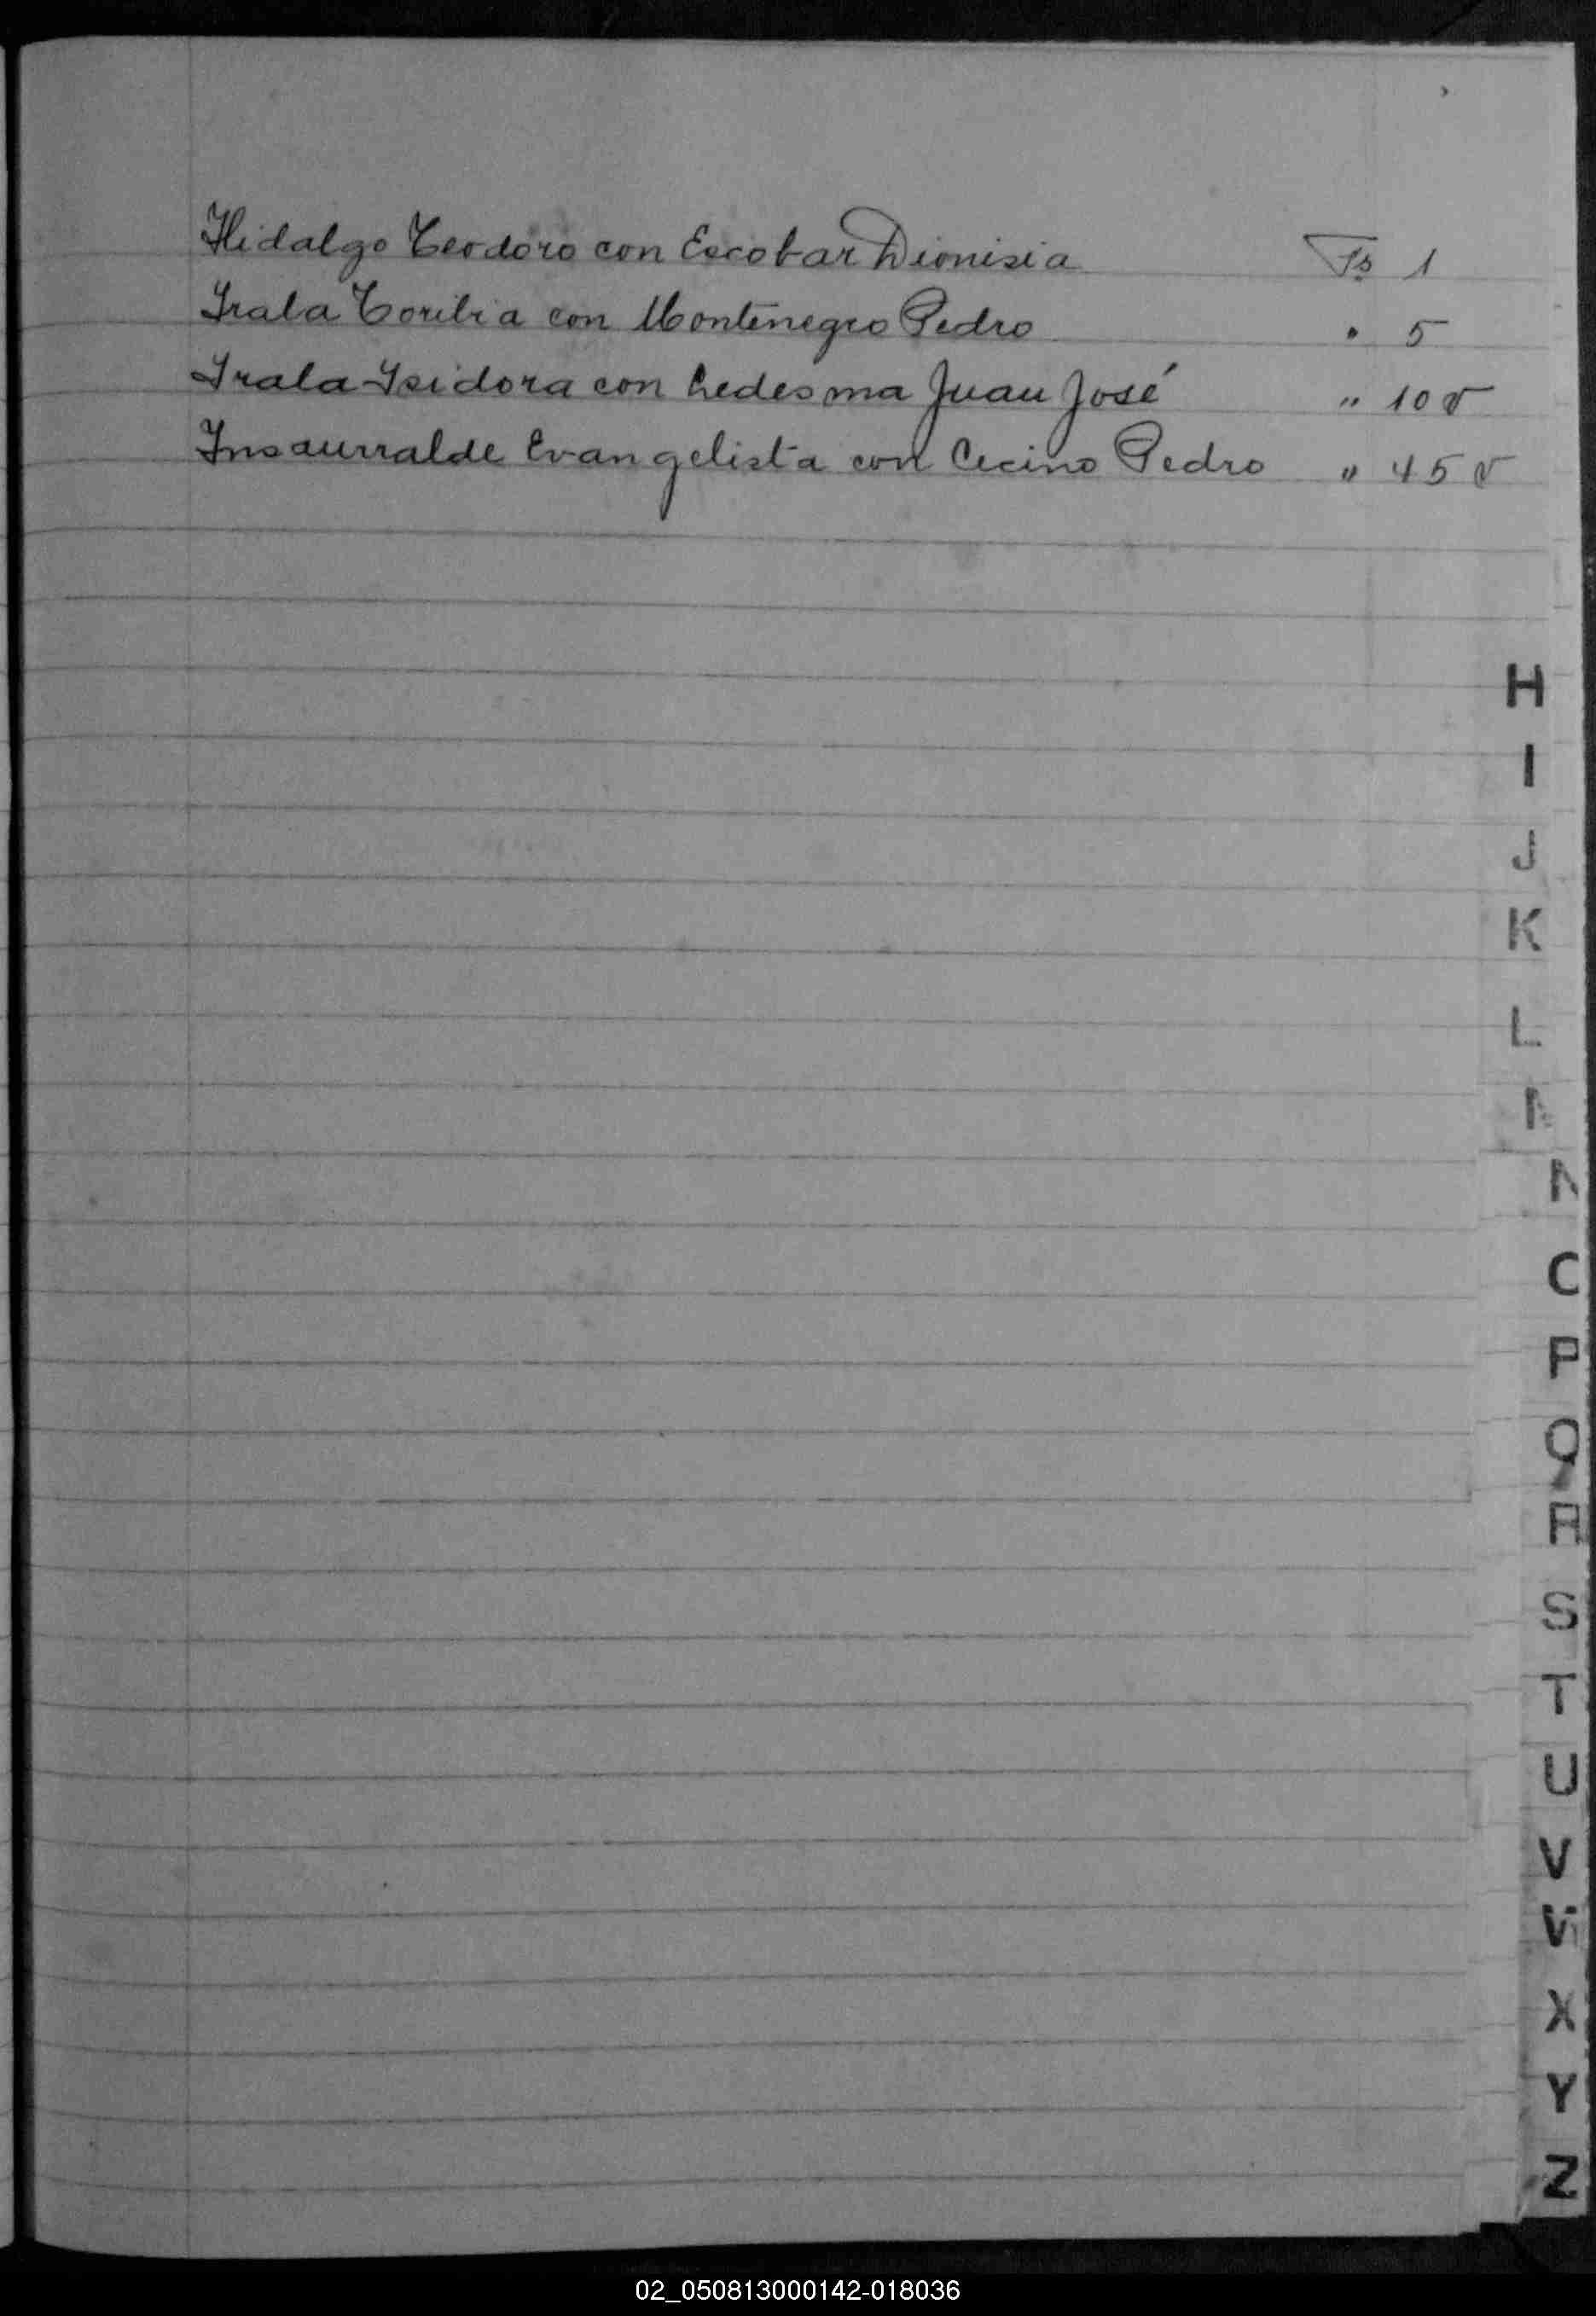 Hidalgo Teodoro con Escobar Dionisia Fs 1
Irala Toribia con Montenegro Pedro " 5
Irala Isidora con Ledesma Juan José " 10 v
Insaurralde Evangelista con Pedro " 45 v
H
I
J
K
L
N
C
P
Q
R
S
T
U
V
X
Y
Z
02_050813000142-018036